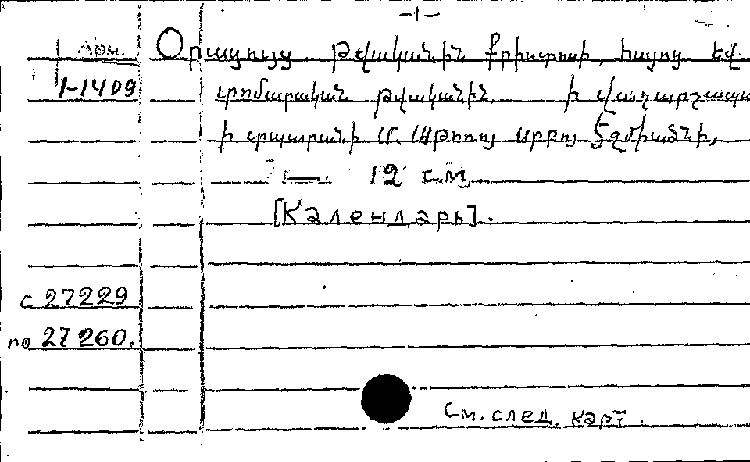 -1-
Арм. Օրացույց թվականին Քրիստոսի, հայոց եվ
1-1409 տոմարական թվականին. ի վաղարշապատ
ի տպարանի Ս. Աթոռոյ սրբոյ Էջմիածնի,
12 см.
[Календарь].
с 27229
по 27260.
См. след. карт.